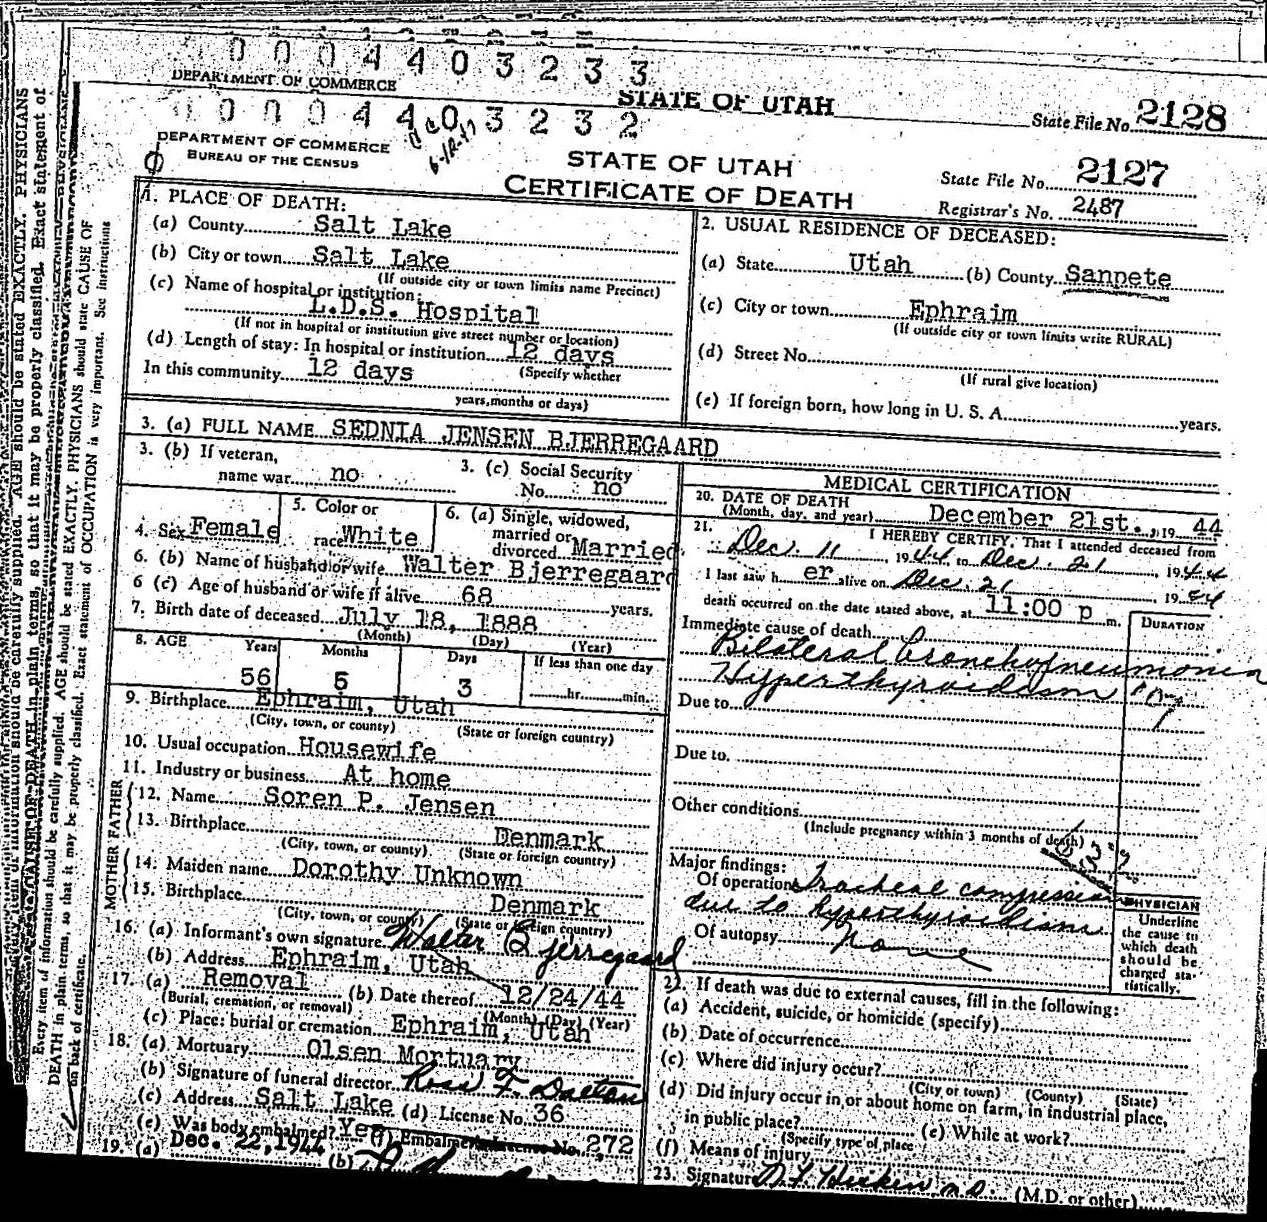 0 0 0 4 4 0 3 2 3 3
DEPARTMENT OF COMMERCE
STATE OF UTAH
State File No. 2128
0 0 0 4 4 0 3 2 3 2
DEPARTMENT OF COMMERCE
BUREAU OF THE CENSUS
STATE OF UTAH
CERTIFICATE OF DEATH
State File No. 2127
Registrar's No. 2487
1. PLACE OF DEATH:
(a) County Salt Lake
(b) City or town Salt Lake
(If outside city or town limits name Precinct)
(c) Name of hospital or institution:
L.D.S. Hospital
(If not in hospital or institution give street number or location)
(d) Length of stay: In hospital or institution 12 days
In this community 12 days (Specify whether
years, months or days)
2. USUAL RESIDENCE OF DECEASED:
(a) State Utah (b) County Sanpete
(c) City or town Ephraim
(If outside city or town limits write RURAL)
(d) Street No.
(If rural give location)
(e) If foreign born, how long in U. S. A. years.
3. (a) FULL NAME SEDNIA JENSEN BJERREGAARD
3. (b) If veteran, name war no
3. (c) Social Security No. no
4. Sex Female
5. Color or race White
6. (a) Single, widowed, married or divorced Married
6. (b) Name of husband or wife Walter Bjerregaard
6 (c) Age of husband or wife if alive 68 years.
7. Birth date of deceased July 18, 1888
(Month) (Day) (Year)
8. AGE Years Months Days If less than one day
56 5 3 hr. min.
9. Birthplace Ephraim, Utah
(City, town, or county) (State or foreign country)
10. Usual occupation Housewife
11. Industry or business At home
FATHER
12. Name Soren P. Jensen
13. Birthplace Denmark
(City, town, or county) (State or foreign country)
MOTHER
14. Maiden name Dorothy Unknown
15. Birthplace Denmark
(City, town, or county) (State or foreign country)
16. (a) Informant's own signature Walter Bjerregaard
(b) Address Ephraim, Utah
17. (a) Removal (b) Date thereof 12/24/44
(Burial, cremation, or removal) (Month) (Day) (Year)
(c) Place: burial or cremation Ephraim, Utah
18. (a) Mortuary Olsen Mortuary
(b) Signature of funeral director
(c) Address Salt Lake (d) License No. 36
(e) Was body embalmed? Yes (f) Embalmer's License No. 272
19. (a) Dec. 22, 1944 (b)
MEDICAL CERTIFICATION
20. DATE OF DEATH
(Month, day, and year) December 21st., 19 44
21. I HEREBY CERTIFY, That I attended deceased from
Dec 11 1944 to Dec. 21 1944
I last saw h er alive on Dec. 21 1944
death occurred on the date stated above, at 11:00 p m.
DURATION
Immediate cause of death
Bilateral bronchopneumonia
Hyperthyroidism
Due to
Due to
Other conditions
(Include pregnancy within 3 months of death)
Major findings:
Of operations Tracheal compression
due to hyperthyroidism
Of autopsy None
PHYSICIAN
Underline
the cause to
which death
should be
charged sta-
tistically.
22. If death was due to external causes, fill in the following:
(a) Accident, suicide, or homicide (specify)
(b) Date of occurrence
(c) Where did injury occur?
(City or town) (County) (State)
(d) Did injury occur in or about home on farm, in industrial place,
in public place? (e) While at work?
(Specify type of place
(f) Means of injury
23. Signature (M.D. or other)